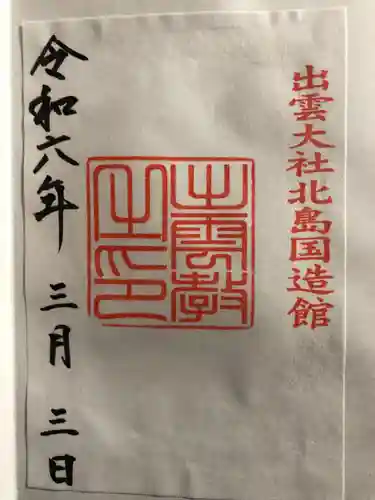 出雲大社北島国造館
出雲教之印
令和六年 三月 三日